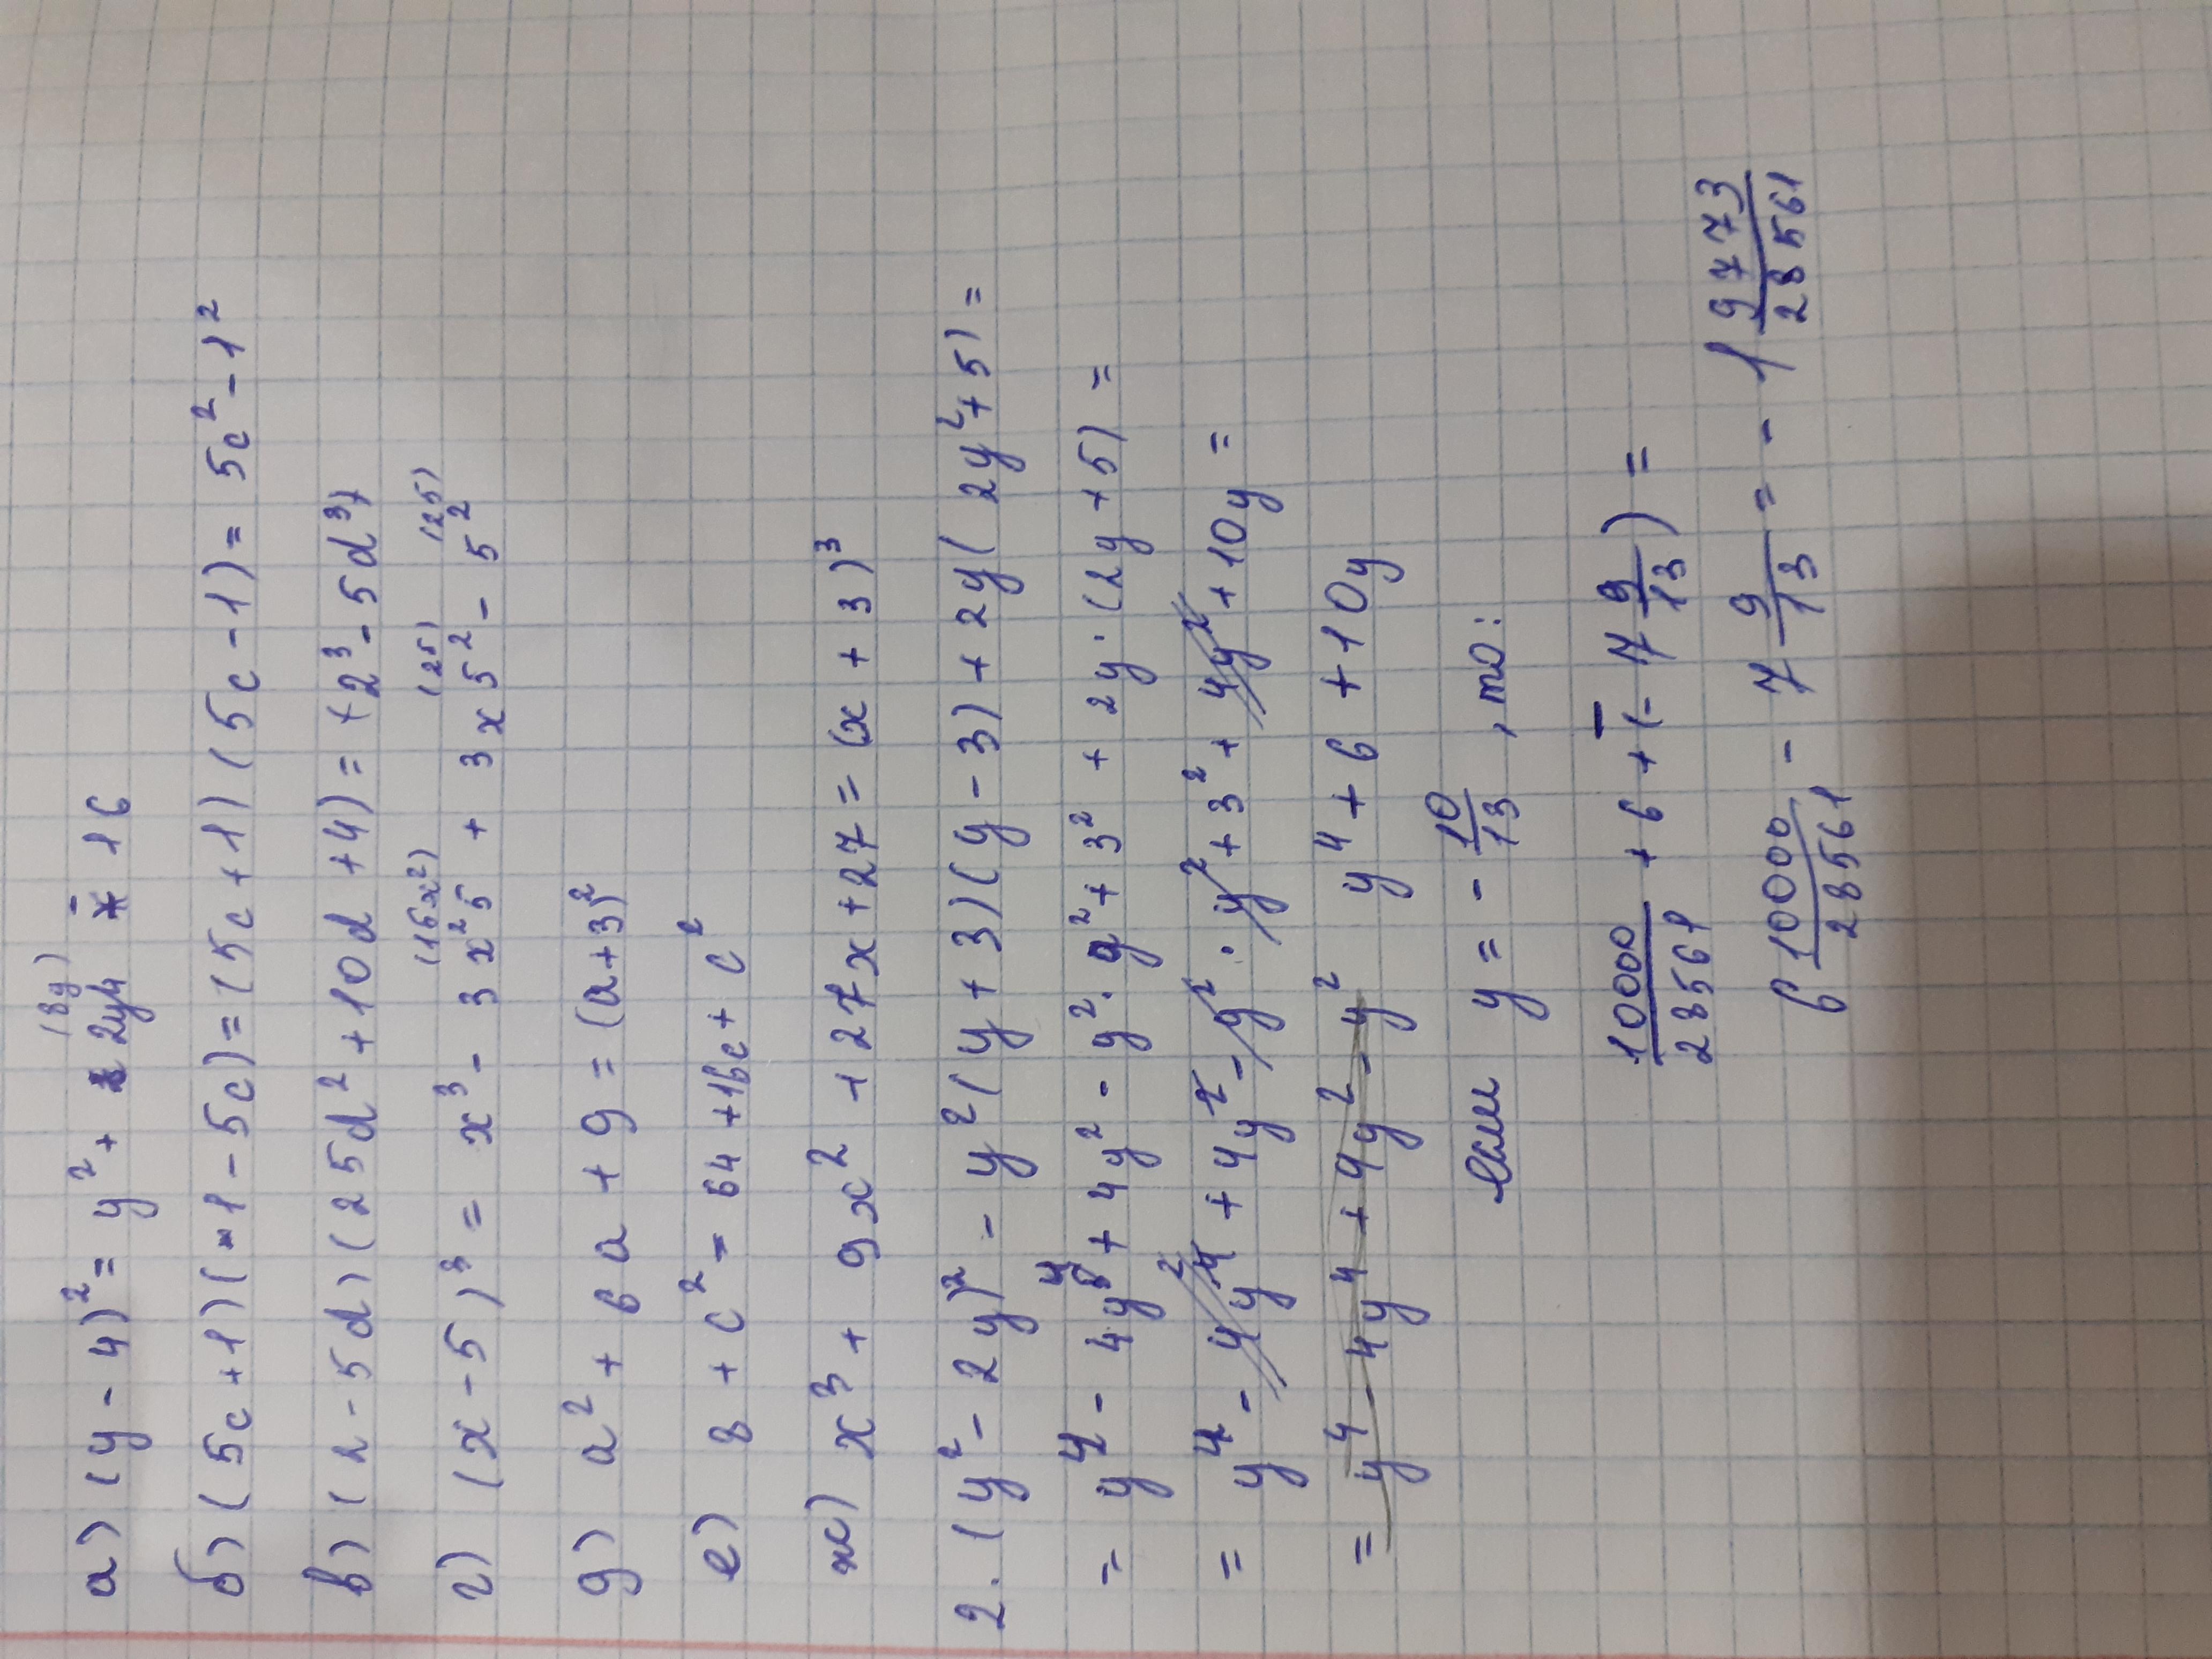 а) (y - 4)² = y² + 2y4 (8y) - 16
б) (5c + 1)(1 - 5c) = (5c + 1)(5c - 1) = 5c² - 1²
в) (2 - 5d)(25d² + 10d + 4) = (2³ - 5d³)
г) (x - 5)³ = x³ - 3x²5 (15x²) + 3x5² (25) - 5² (125)
д) a² + 6a + 9 = (a + 3)²
е) 8 + c² = 64 + 16c + c²
ж) x³ + 9x² + 27x + 27 = (x + 3)³
2. (y² - 2y)² - y²(y + 3)(y - 3) + 2y(2y² + 5) =
= y⁴ - 4y⁴ + 4y² - y² · y² + 3² + 2y · (2y + 5) =
= y⁴ - 4y⁴ + 4y² - y² · y² + 3² + 4y² + 10y =
= y⁴ - 4y⁴ + 4y² - y² y⁴ + 6 + 10y
если y = - 10/13, то:
10000/28561 + 6 + (- 7 9/13) =
6 10000/28561 - 7 9/13 = - 1 9773/28561